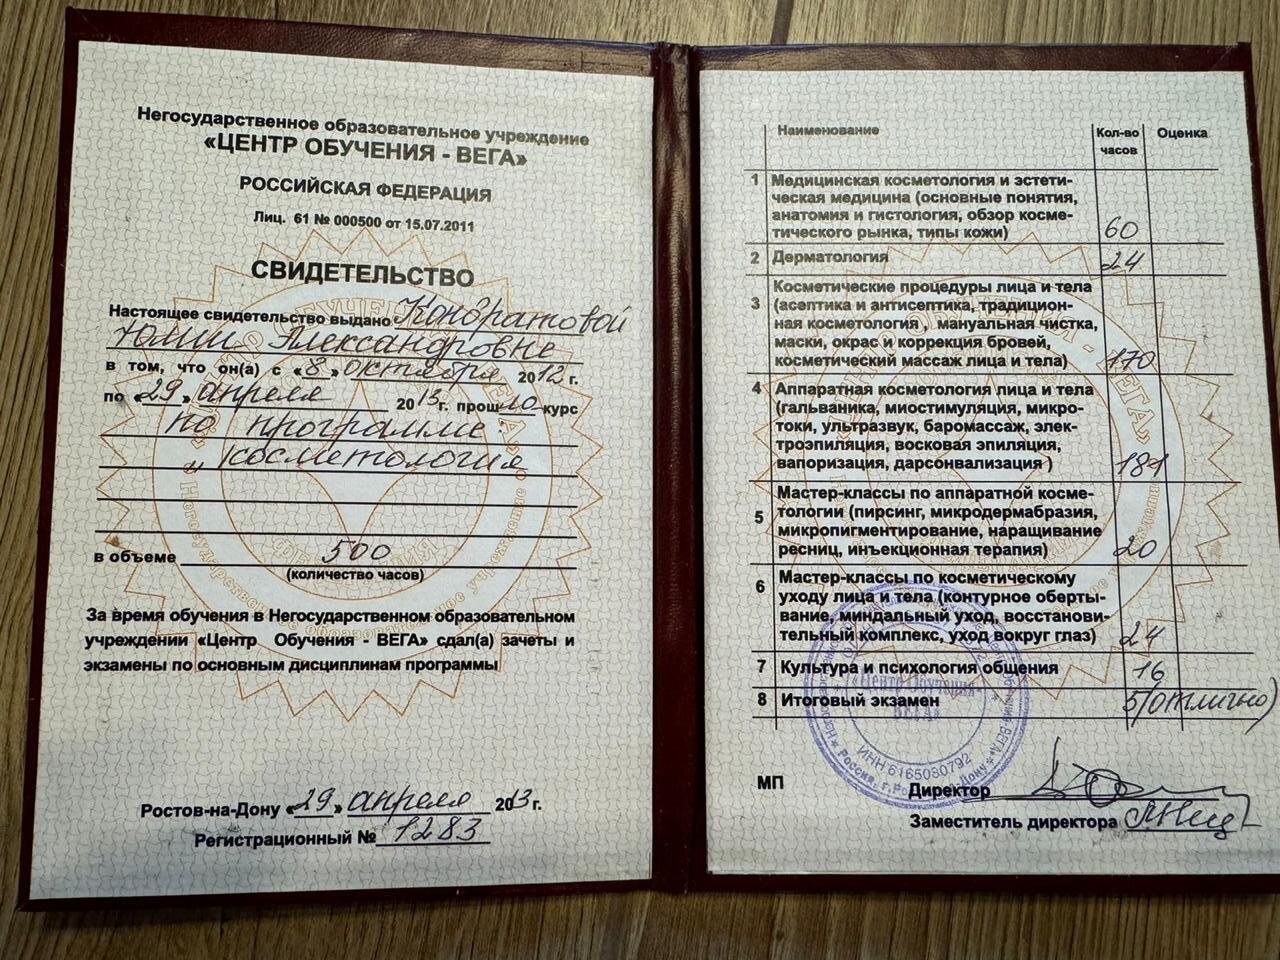 Негосударственное образовательное учреждение
«ЦЕНТР ОБУЧЕНИЯ - ВЕГА»
РОССИЙСКАЯ ФЕДЕРАЦИЯ
Лиц. 61 № 000500 от 15.07.2011
СВИДЕТЕЛЬСТВО
Настоящее свидетельство выдано Кондратовой
Юлии Александровне
в том, что он(а) с «8» октября 2012 г.
по «29» апреля 2013 г. прош курс
по программе:
„ косметология
в объеме 500
(количество часов)
За время обучения в Негосударственном образовательном
учреждении «Центр Обучения - ВЕГА» сдал(а) зачеты и
экзамены по основным дисциплинам программы
Ростов-на-Дону «29» апреля 2013 г.
Регистрационный № 1283
Наименование Кол-во часов Оценка
1 Медицинская косметология и эстети-
ческая медицина (основные понятия,
анатомия и гистология, обзор косме-
тического рынка, типы кожи) 60
2 Дерматология 24
Косметические процедуры лица и тела
3 (асептика и антисептика, традицион-
ная косметология , мануальная чистка,
маски, окрас и коррекция бровей,
косметический массаж лица и тела) 170
4 Аппаратная косметология лица и тела
(гальваника, миостимуляция, микро-
токи, ультразвук, баромассаж, элек-
троэпиляция, восковая эпиляция,
вапоризация, дарсонвализация ) 181
Мастер-классы по аппаратной косме-
5 тологии (пирсинг, микродермабразия,
микропигментирование, наращивание
ресниц, инъекционная терапия) 20
6 Мастер-классы по косметическому
уходу лица и тела (контурное оберты-
вание, миндальный уход, восстанови-
тельный комплекс, уход вокруг глаз) 24
7 Культура и психология общения 16
8 Итоговый экзамен 5(отлично)
«Центр Обучения-
ВЕГА»
ИНН 6165080792
МП
Директор
Заместитель директора